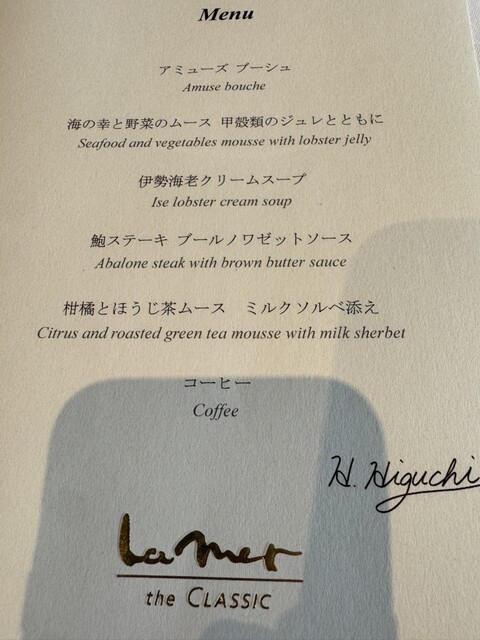 Menu
アミューズ ブーシュ
Amuse bouche
海の幸と野菜のムース 甲殻類のジュレとともに
Seafood and vegetables mousse with lobster jelly
伊勢海老クリームスープ
Ise lobster cream soup
鮑ステーキ ブールノワゼットソース
Abalone steak with brown butter sauce
柑橘とほうじ茶ムース　ミルクソルベ添え
Citrus and roasted green tea mousse with milk sherbet
コーヒー
Coffee
H. Higuchi
La mer
the CLASSIC